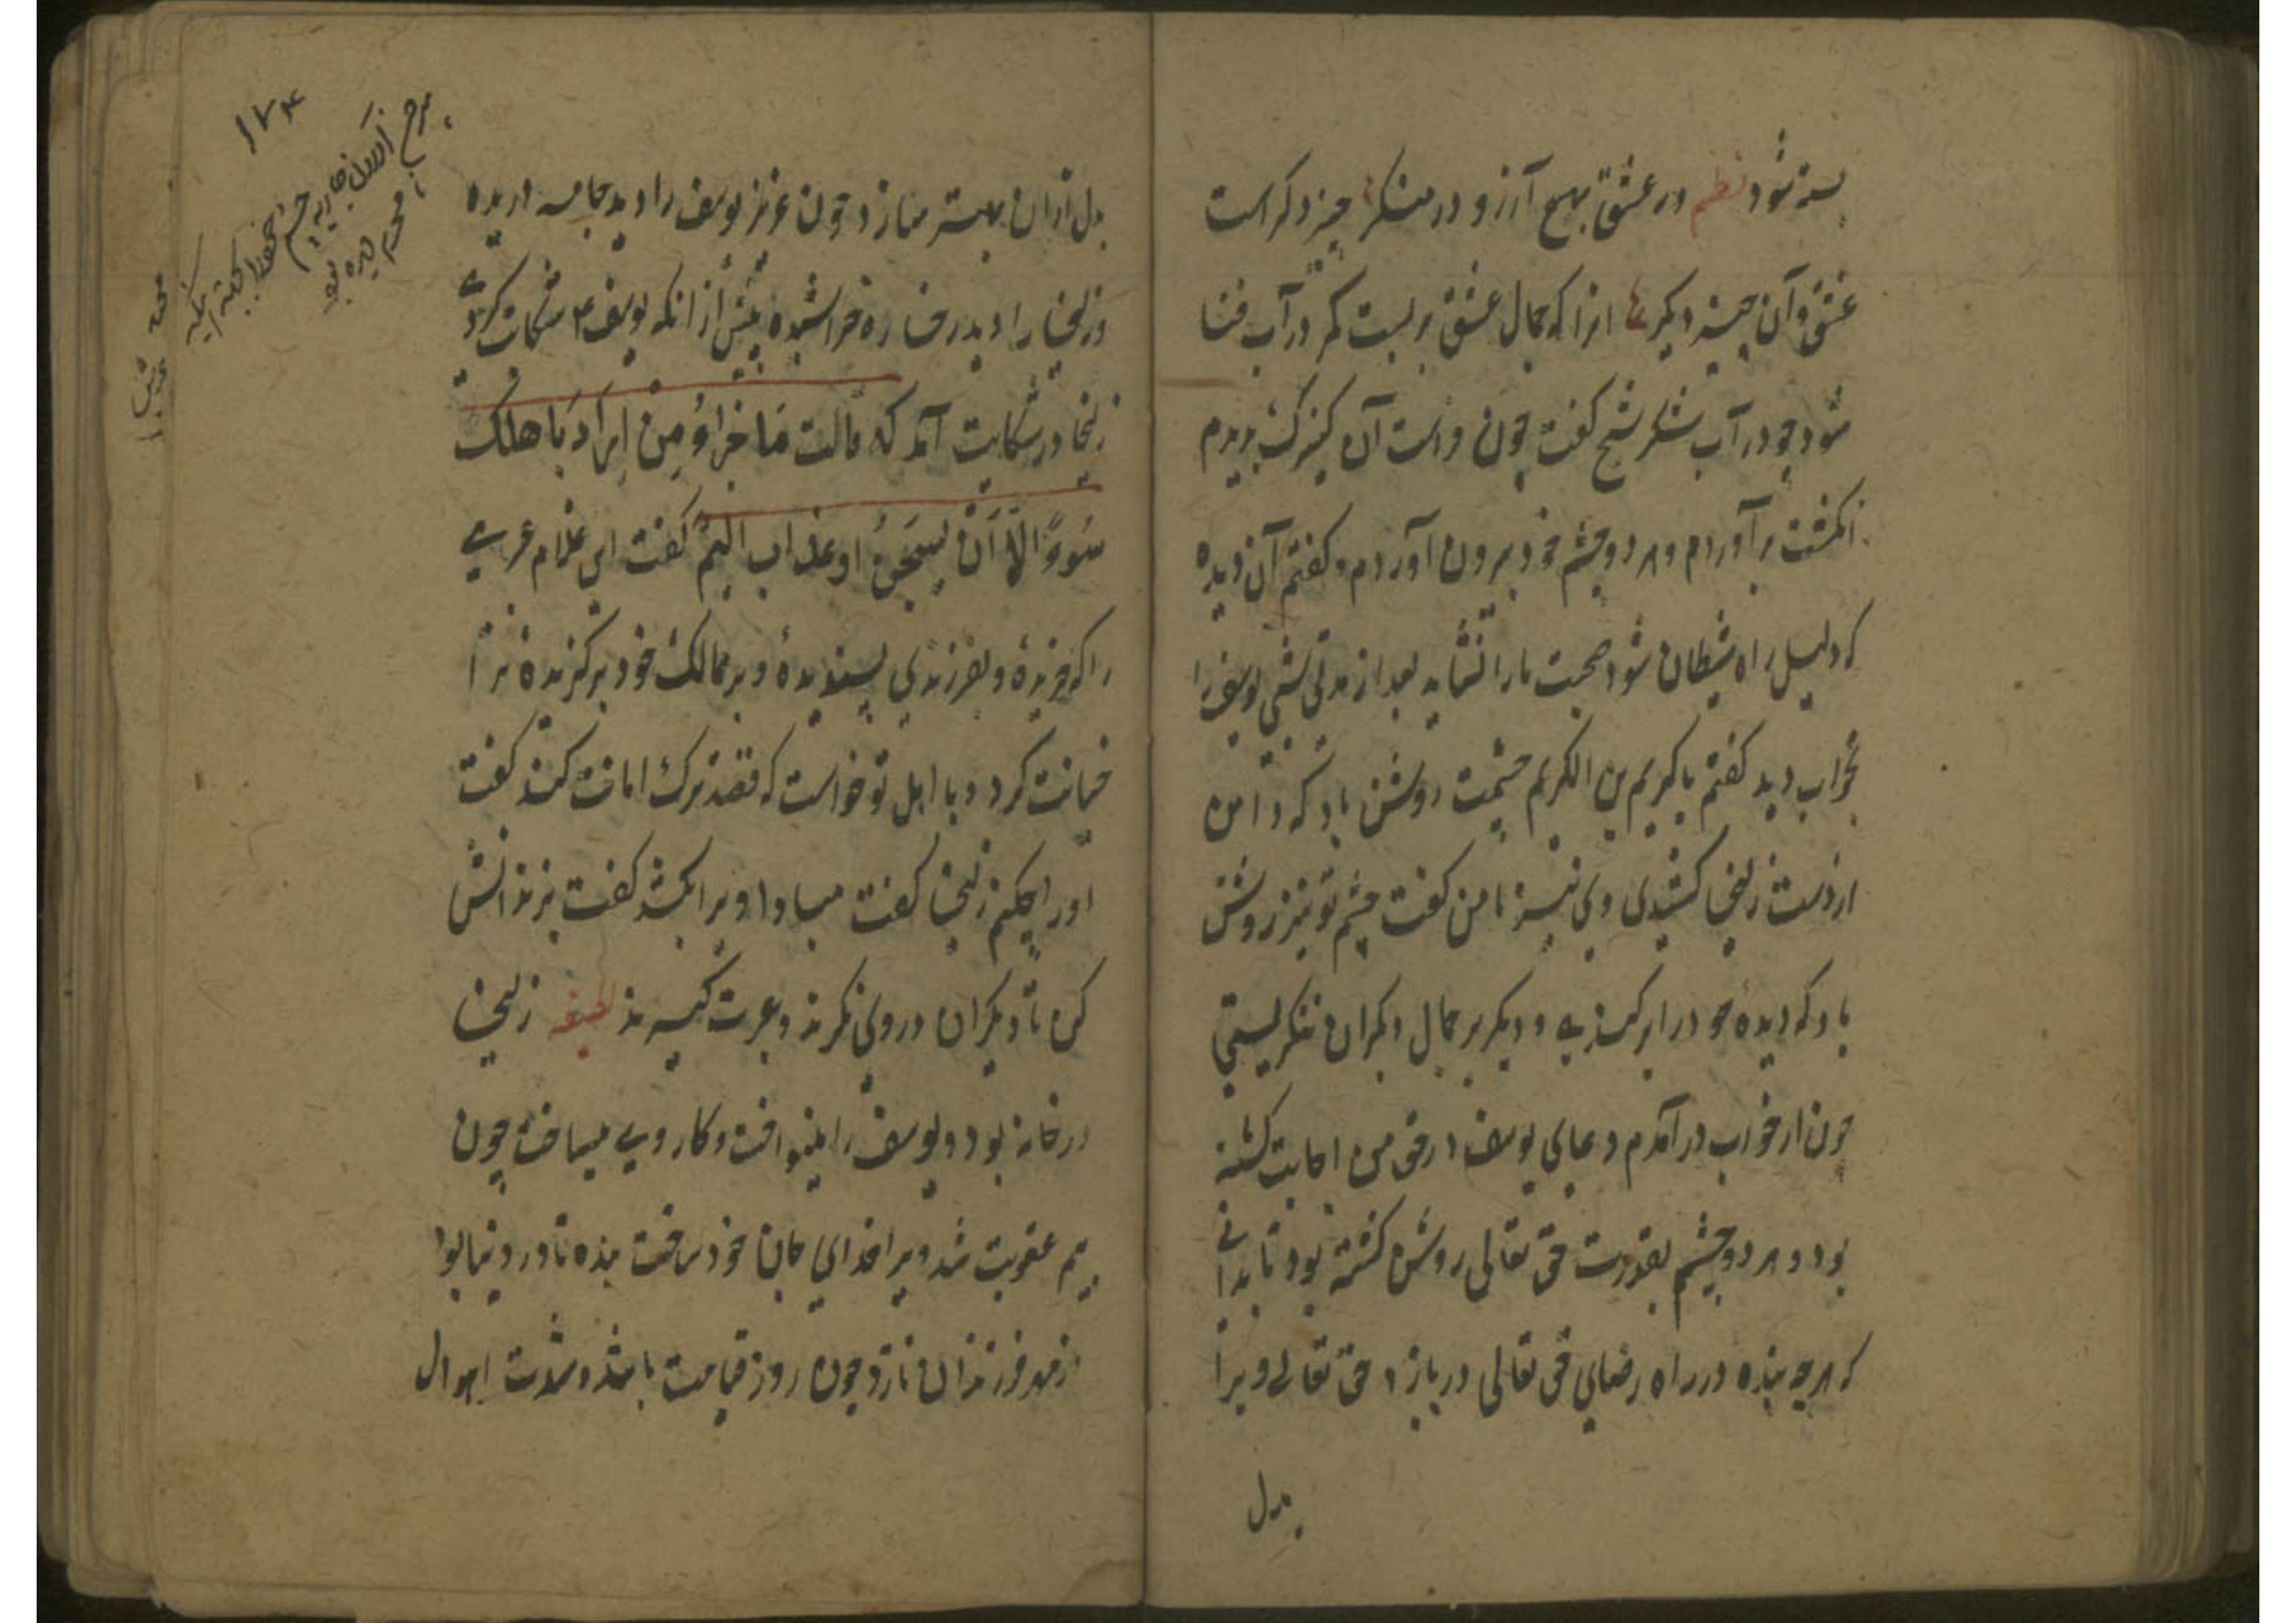 بسته شود نظم در عشق بهیچ آرزو در منگر چیز دگر است
عشق و آن چیز دیگر انرا که جمال عشق بربست کمر در آب فنا
شود چو در آب شکر شیخ گفت چون راست آن کنیزک بدیدم
انکشت برآوردم و هر دو چشم خود بیرون آوردم و کفتم آن دیده
که دلیل راه شیطان شود صحبت ما را نشاید بعد از مدتی شبی یوسف را
بخواب دید کفتم یا کریم بن الکریم چشمت روشن باد که دامن
از دست زلیخا کشیدی و با من کفت چشم تو نیز روشن
باد که دیده خود را برکندی و دیگر بر جمال دیگران ننگریستی
چون از خواب درآمدم دعای یوسف در حق من اجابت کشته
بود و هر دو چشم بقدرت حق تعالی روشن کشته بود تا بدانی
که هر چه بنده در راه رضای حق تعالی دربازد حق تعالی ویرا
بدل
۱۷۴
بدل ازان بهتر سازد چون عزیز یوسف را دید جامه دریده
و زلیخا را دید رخساره خراشیده پیش از انکه یوسف ع شکایت کردی
زلیخا در شکایت آمد که قالت مَا جَزَاؤُ مِنْ اَرَادَ بِاَهلک
سُوءً الّا اَنْ یسجَن او عذاب الیمٌ کفت این غلام عبری
را که خریدهٔ و بفرزندی پسندیدهٔ و بر ممالک خود برکزیدهٔ ترا
خیانت کرد و با اهل تو خواست که قصد ترک امانت کند کفت
او را چکنم زلیخا کفت مبادا ویرا بکشد کفت بزندانش
کن تا دیکران در وی نکرند و عبرت کیرند لطیفه زلیخا
در خانه بود و یوسف را مینواخت و کار وی میساخت چون
بیم عقوبت شد ویرا فدای جان خود ساخت بنده تا در دنیا بود
از مهر فرزندان نازد چون روز قیامت باشد و شدت اهوال